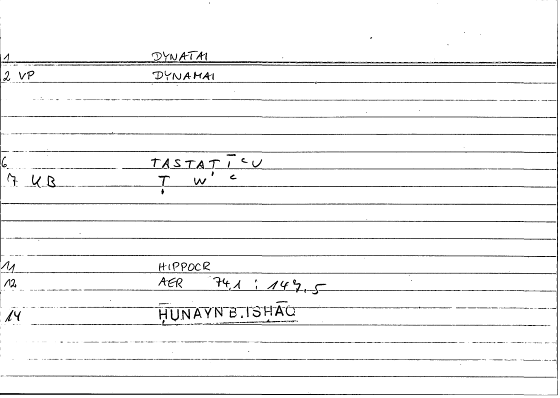 1 DYNATAI
2 VP DYNAMAI
6 TASTAṬĪʿU
7 ṬWʿ
11 HIPPOCR
12 AER 74,1 : 147,5
14 ḤUNAYN B. ISḤĀQ